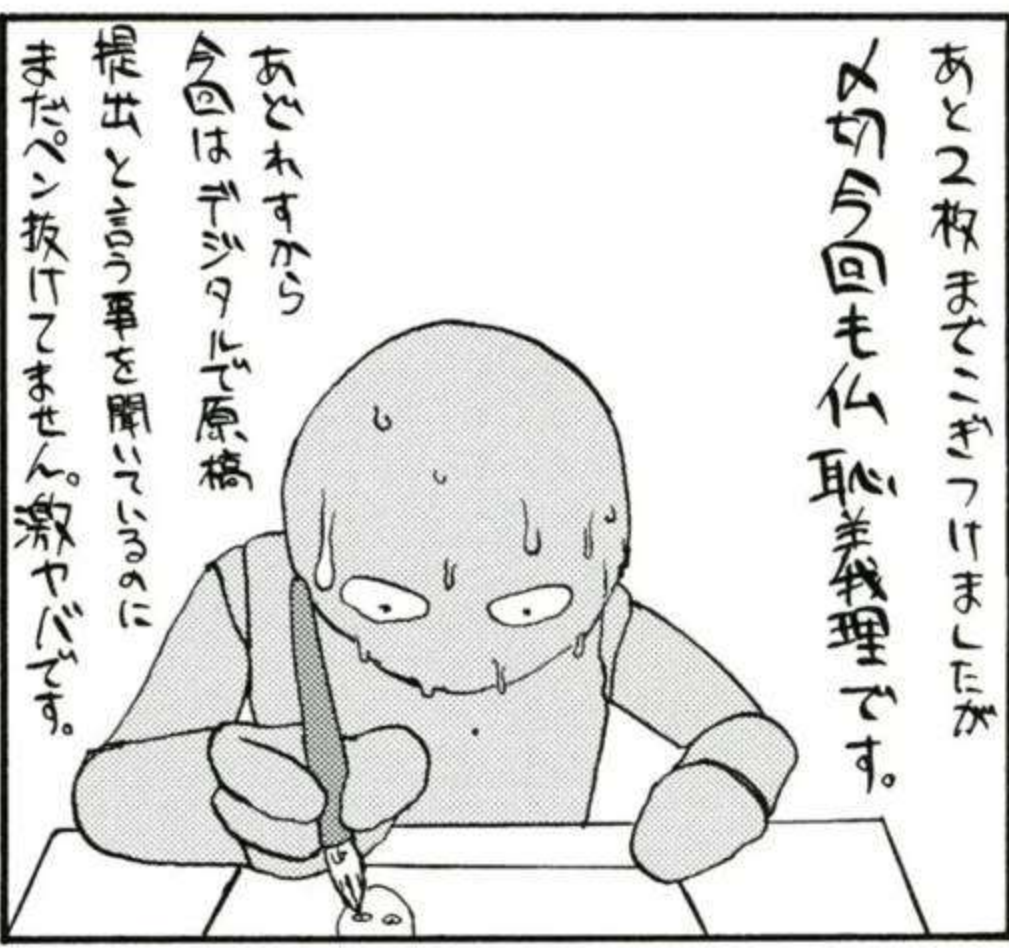 あと2枚までこぎつけましたが
〆切今回も仏恥義理です。
あどれすから
今回はデジタルで原稿
提出と言う事を聞いているのに
まだペン抜けてません。激ヤバです。